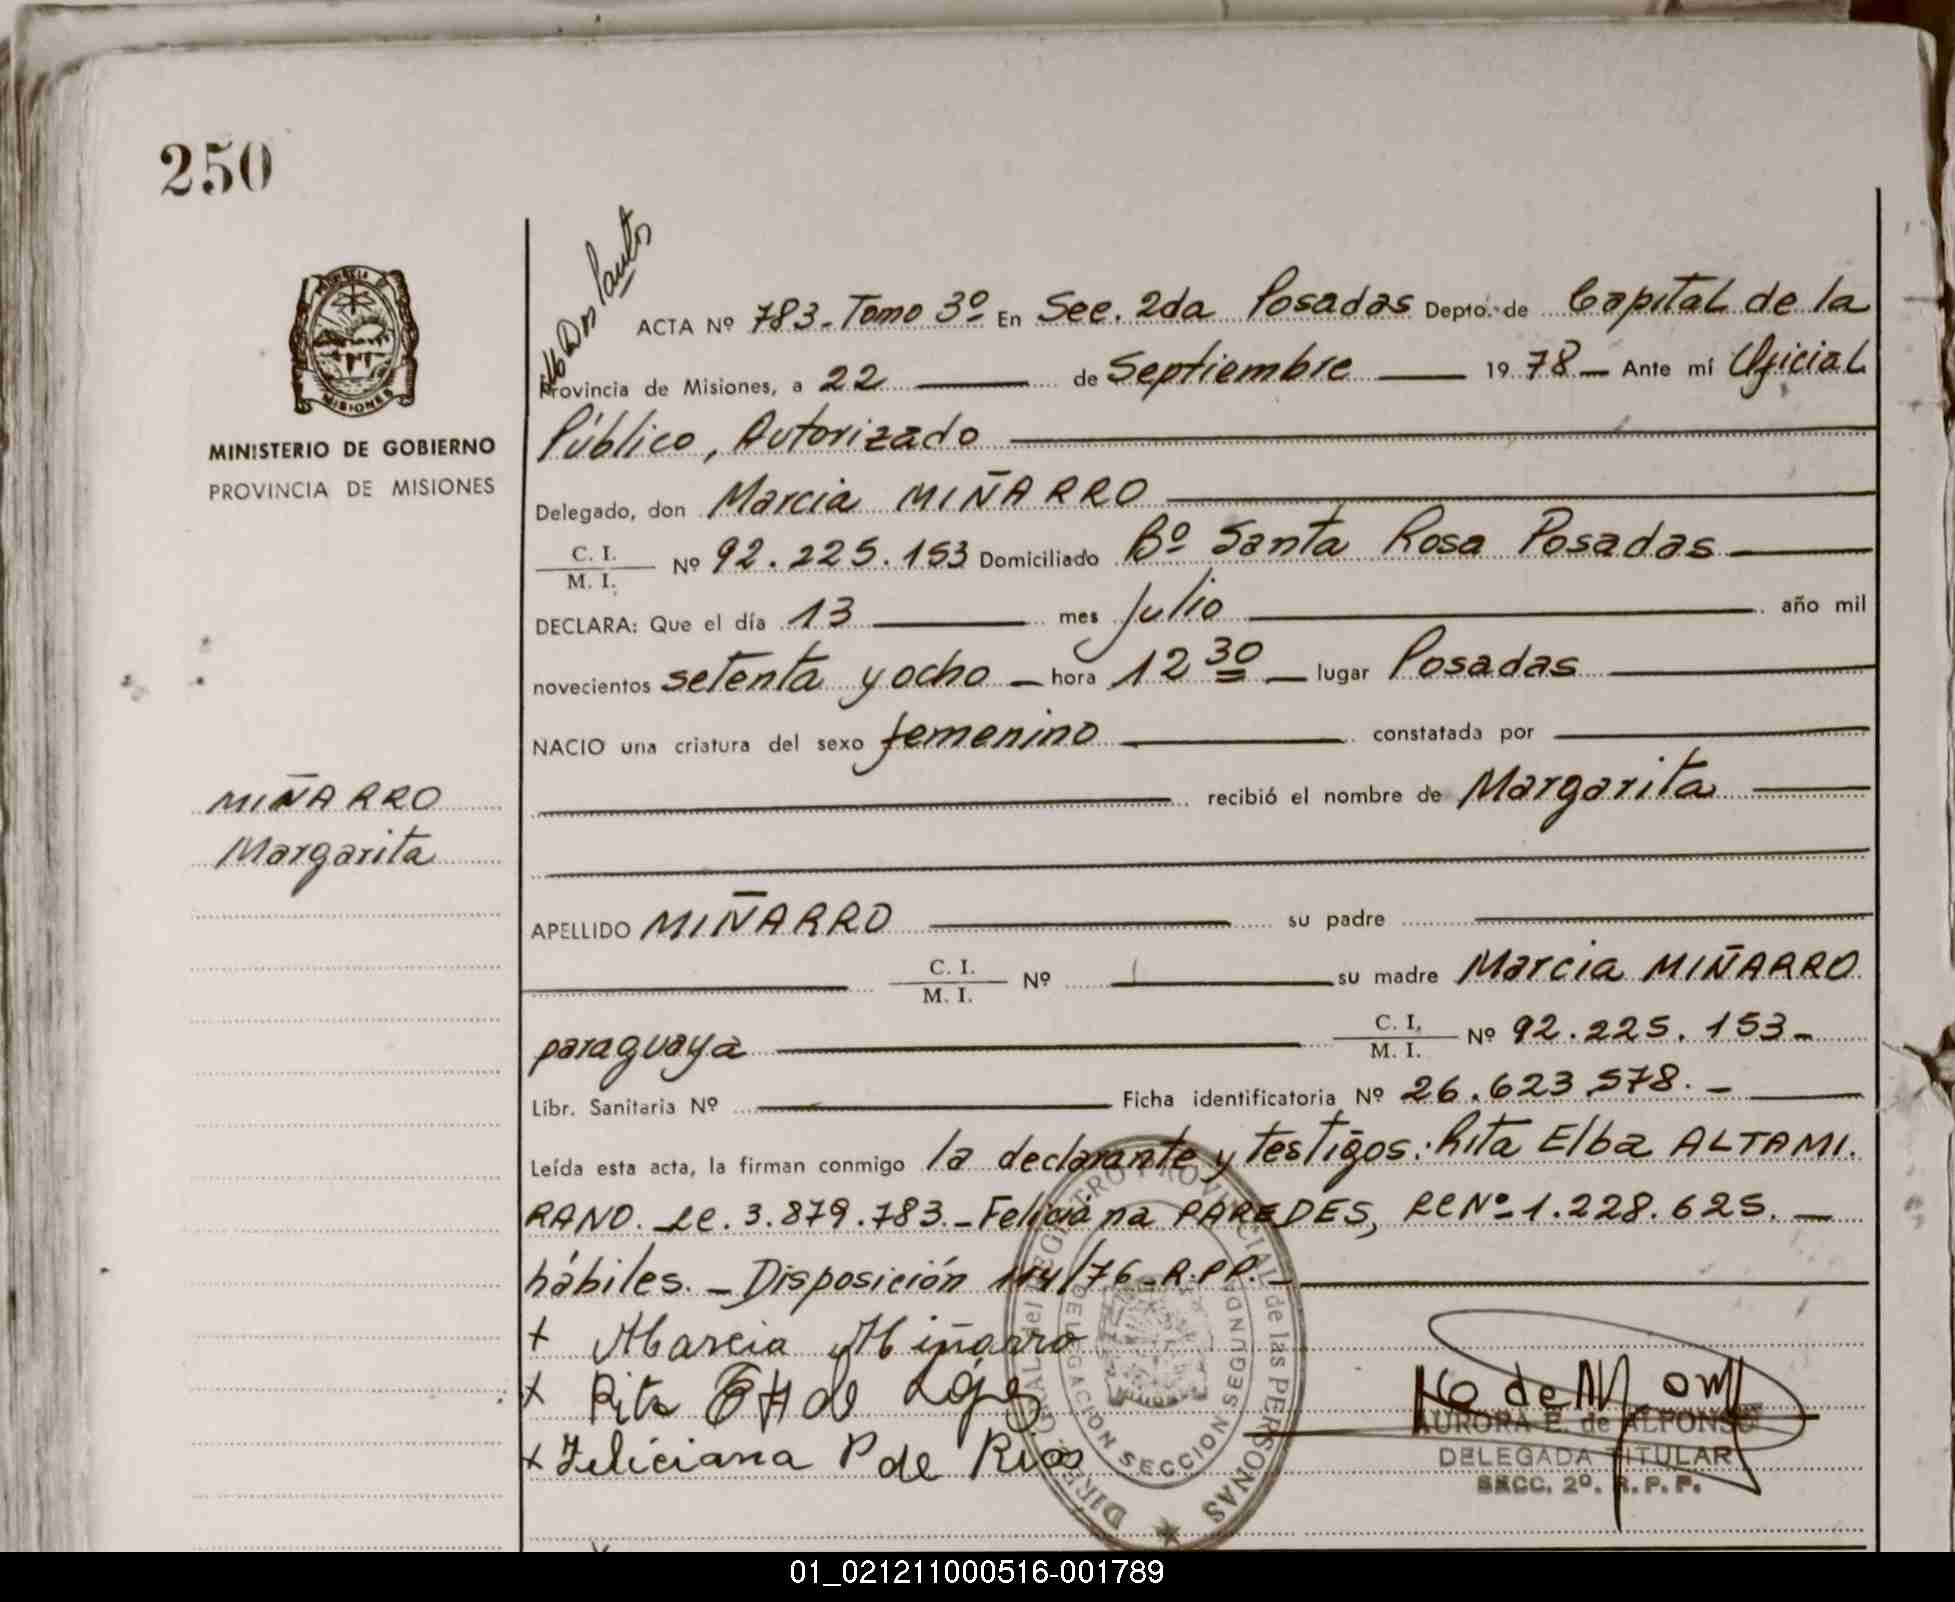 250
MINISTERIO DE GOBIERNO
PROVINCIA DE MISIONES
MIÑARRO
Margarita
ACTA Nº 783 - Tomo 3º En Sec. 2da Posadas Depto. de Capital de la
Provincia de Misiones, a 22 de Septiembre 19 78 - Ante mí Oficial
Público, Autorizado
Delegado, don Marcia MIÑARRO
C. I.
M. I. Nº 92.225.153 Domiciliado Bº Santa Rosa Posadas
DECLARA: Que el día 13 mes Julio año mil
novecientos setenta y ocho - hora 12 30 - lugar Posadas
NACIO una criatura del sexo femenino constatada por
recibió el nombre de Margarita
APELLIDO MIÑARRO su padre
C. I.
M. I. Nº su madre Marcia MIÑARRO
paraguaya C. I.
M. I. Nº 92.225.153-
Libr. Sanitaria Nº Ficha identificatoria Nº 26.623.578. -
Leída esta acta, la firman conmigo la declarante y testigos: Rita Elba ALTAMI.
RANO. LC. 3.879.783. - Feliciana PAREDES, RC Nº 1.228.625. -
hábiles. - Disposición 114/76 - R.P.P. -
+ Marcia Miñarro
+ Rita de López
+ Feliciana P de Rios
DIRECCION GRAL del REGISTRO PROVINCIAL de las PERSONAS
DELEGACION SECCION SEGUNDA
AURORA E. de ALFONSO
DELEGADA TITULAR
SECC. 2º. R. P. P.
01_021211000516-001789